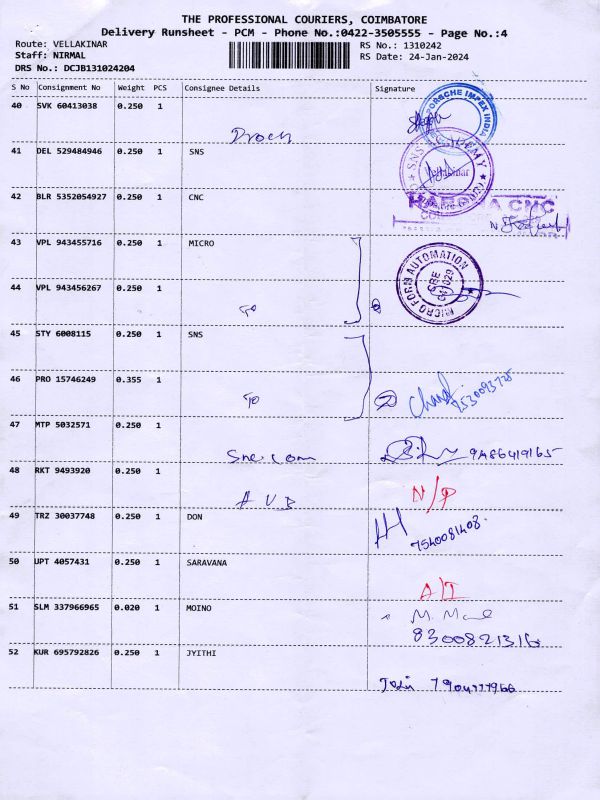 THE PROFESSIONAL COURIERS, COIMBATORE
Delivery Runsheet - PCM - Phone No.:0422-3505555 - Page No.:4
Route: VELLAKINAR RS No.: 1310242
Staff: NIRMAL RS Date: 24-Jan-2024
DRS No.: DCJB131024204
S No Consignment No Weight PCS Consignee Details Signature
40 SVK 60413038 0.250 1
PORSCHE IMPEX INDIA
41 DEL 529484946 0.250 1 SNS
SNS ACADEMY
42 BLR 5352054927 0.250 1 CNC
CNC
43 VPL 943455716 0.250 1 MICRO
MICRO FORM AUTOMATION
44 VPL 943456267 0.250 1
To
45 STY 6008115 0.250 1 SNS
46 PRO 15746249 0.355 1
To
47 MTP 5032571 0.250 1
9486419165
48 RKT 9493920 0.250 1
AVB N/P
49 TRZ 30037748 0.250 1 DON
7540081408
50 UPT 4057431 0.250 1 SARAVANA
A/I
51 SLM 337966965 0.020 1 MOINO
8300821316
52 KUR 695792826 0.250 1 JYITHI